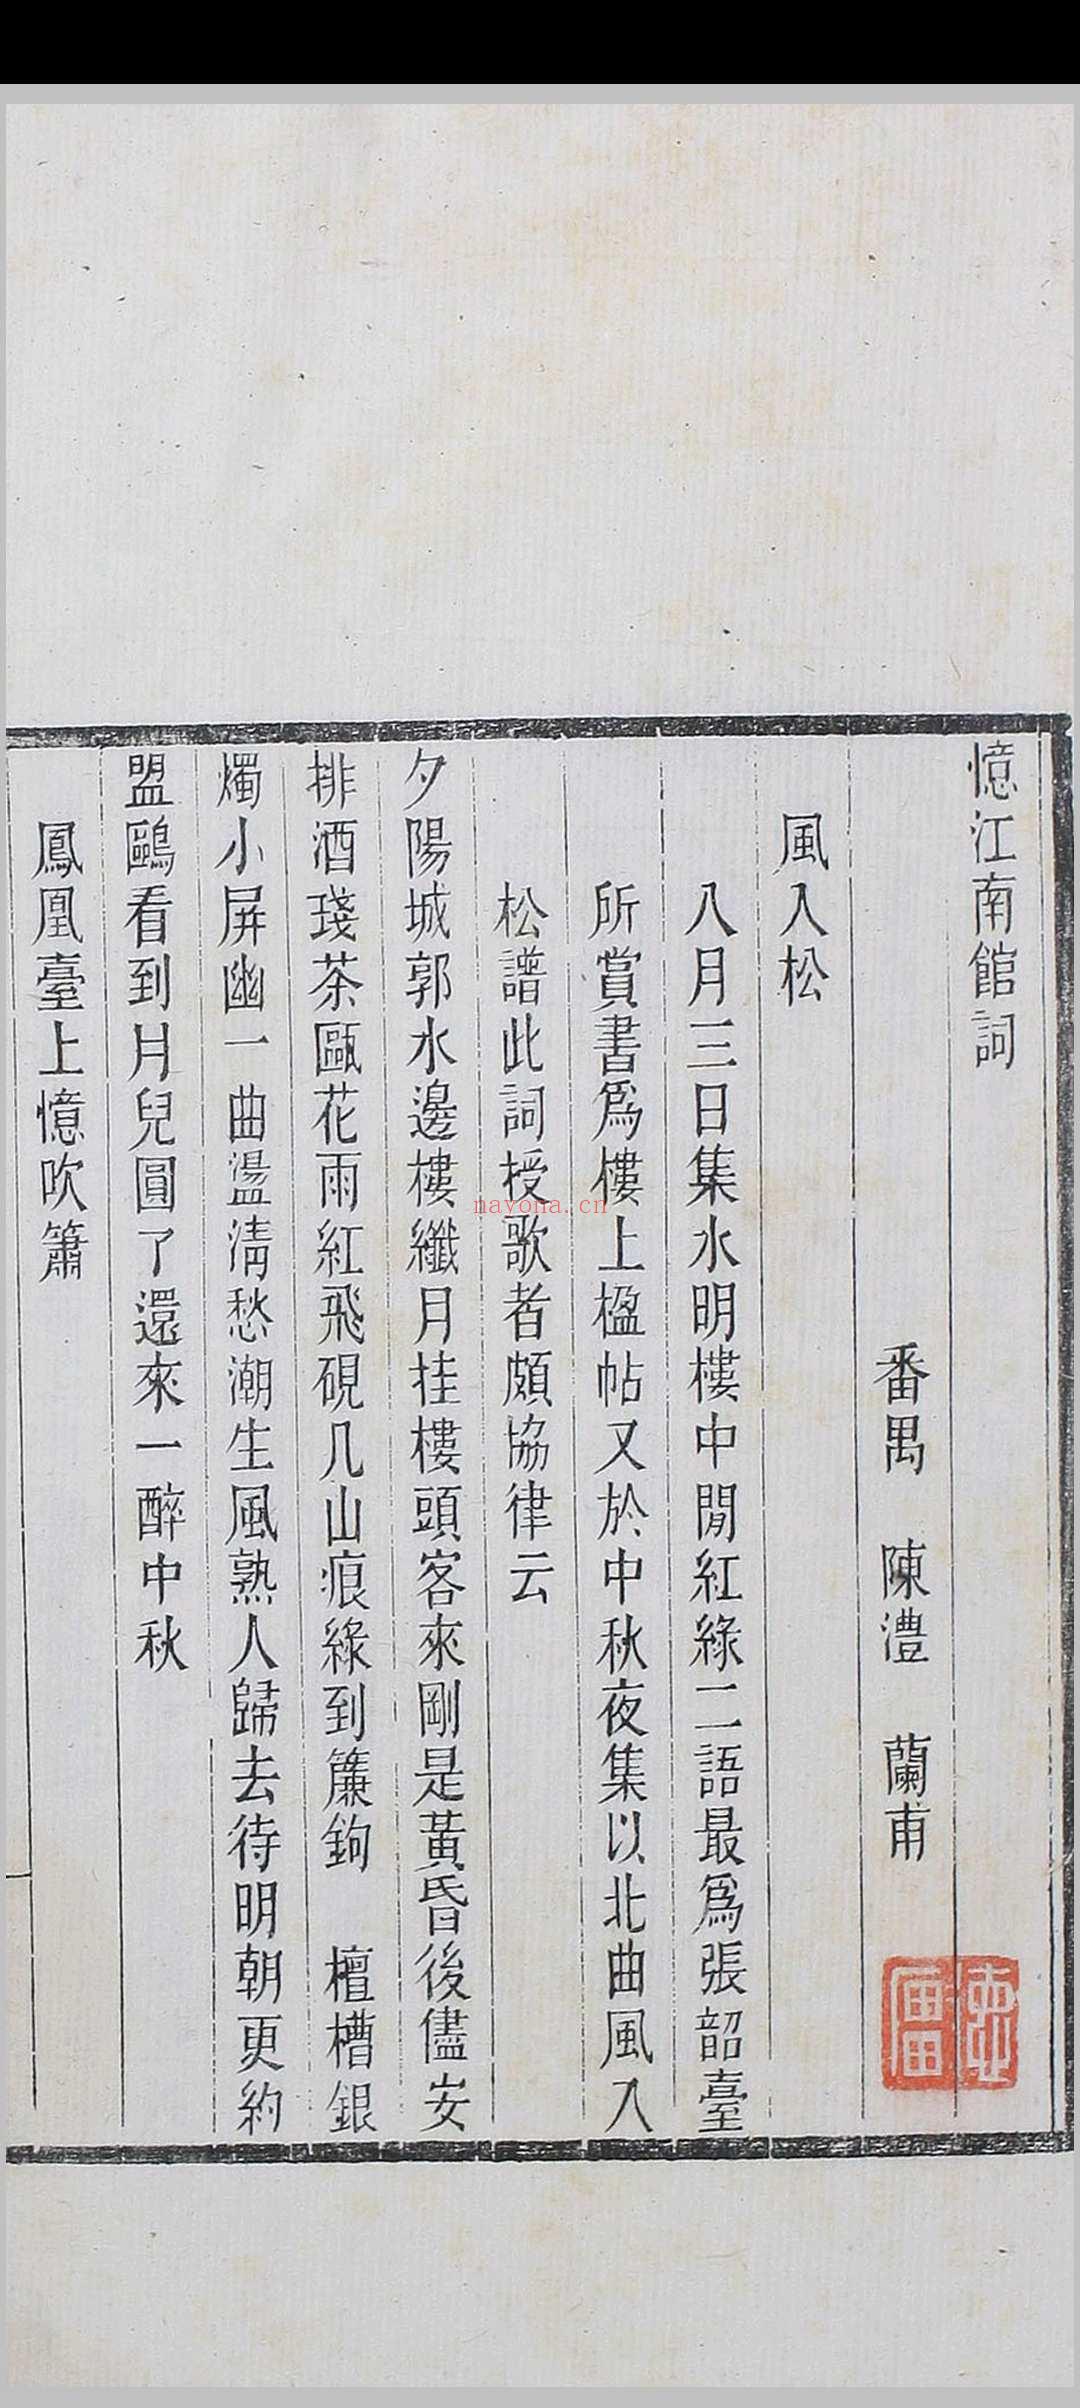 憶江南館詞
番禺　陳澧　蘭甫
風入松
八月三日集水明樓中閒紅綠二語最爲張韶臺
所賞書爲樓上楹帖又於中秋夜集以北曲風入
松譜此詞授歌者頗協律云
夕陽城郭水邊樓纖月挂樓頭客來剛是黃昏後儘安
排酒琖茶甌花雨紅飛硯几山痕綠到簾鉤　檀槽銀
燭小屏幽一曲盪清愁潮生風熟人歸去待明朝更約
盟鷗看到月兒圓了還來一醉中秋
鳳凰臺上憶吹簫
nayona.cn